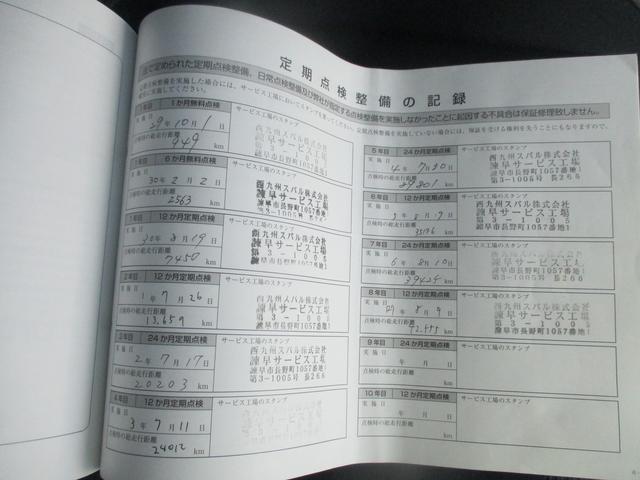 定期点検整備の記録
法で定められた定期点検整備、日常点検整備及び弊社が指定する点検整備を実施しなかったことに起因する不具合は保証修理致しません。
1か月無料点検
サービス工場のスタンプ
実施日
29年10月1日
点検時の総走行距離
949 km
西九州スバル株式会社
諫早サービス工場
諫早市長野町1057番地1
6か月無料点検
サービス工場のスタンプ
実施日
30年2月2日
点検時の総走行距離
2563 km
西九州スバル株式会社
諫早サービス工場
諫早市長野町1057番地1
第3-1005号 長266
12か月定期点検
サービス工場のスタンプ
実施日
30年8月19日
点検時の総走行距離
7450 km
西九州スバル株式会社
諫早サービス工場
12か月定期点検
サービス工場のスタンプ
実施日
1年7月26日
点検時の総走行距離
13,659 km
西九州スバル株式会社
諫早サービス工場
諫早市長野町1057番地1
24か月定期点検
サービス工場のスタンプ
実施日
2年7月17日
点検時の総走行距離
20203 km
西九州スバル株式会社
諫早サービス工場
諫早市長野町1057番地1
第3-1005号 長266
12か月定期点検
サービス工場のスタンプ
実施日
3年7月11日
点検時の総走行距離
24012 km
5年目 24か月定期点検
サービス工場のスタンプ
実施日
4年7月30日
点検時の総走行距離
km
西九州スバル株式会社
諫早サービス工場
諫早市長野町1057番地1
第3-1005号 長266
6年目 12か月定期点検
サービス工場のスタンプ
実施日
点検時の総走行距離
km
西九州スバル株式会社
諫早サービス工場
第3-1005
諫早市長野町1057番地1
7年目 24か月定期点検
サービス工場のスタンプ
実施日
6年8月10日
点検時の総走行距離
39424 km
8年目 12か月定期点検
サービス工場のスタンプ
実施日
点検時の総走行距離
km
西九州スバル株式会社
諫早サービス工場
諫早市長野町1057番地1
9年目 24か月定期点検
サービス工場のスタンプ
実施日
年 月 日
点検時の総走行距離
km
10年目 12か月定期点検
サービス工場のスタンプ
実施日
年 月 日
点検時の総走行距離
km